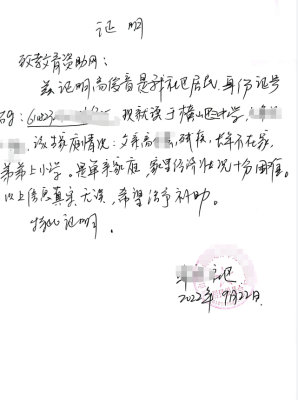 证明
教育资助网：
兹证明高佳音是我社区居民，身份证号
码：61023 现就读于横山区中学，
该生家庭情况：父亲高 残疾，长年不在家，
弟弟上小学。是单亲家庭，家里经济状况十分困难。
以上信息真实无误，希望给予补助。
特此证明。
社区
2022年9月22日.